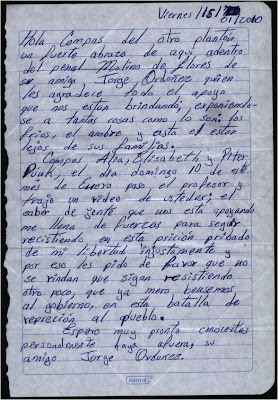 Viernes /15/
01/2010
Hola Compas del otro plantón
un fuerte abrazo de aqui adentro
del penal Molino de Flores de
su amigo Jorge Ordoñez quien
les agradece todo el apoyo
que nos estan brindando, exponiendo-
se a tantas cosas como lo son: los
frios, el ambre y asta el estar
lejos de sus familias.
Compas Alta, Elizabeth y Piter
Punk, el dia domingo 10 de este
mes de Enero paso el profesor y
trajo un video de ustedes; el
saber de gente que nos esta apoyando
me llena de fuerzas para seguir
recistiendo en esta prición privado
de mi libertad injustamente y
por eso les pido de favor que no
se rindan que sigan resistiendo
otro poco, que ya mero bensemos
al gobierno, en esta batalla de
repreción al pueblo.
Espero muy pronto conocerlos
personalmente haya afuera, su
amigo Jorge Ordoñez.